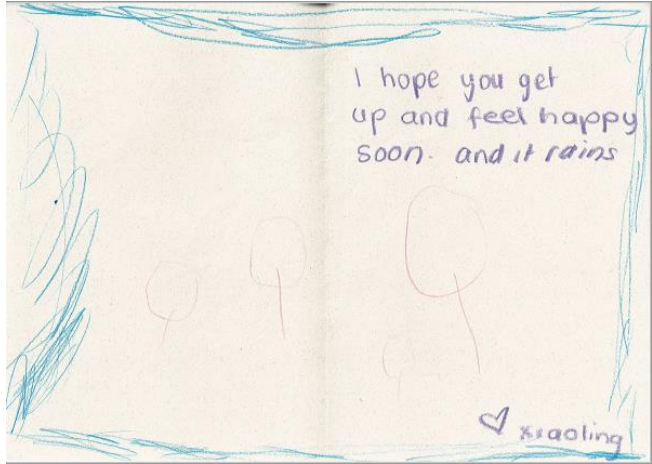 I hope you get
up and feel happy
soon. and it rains
xiaoling